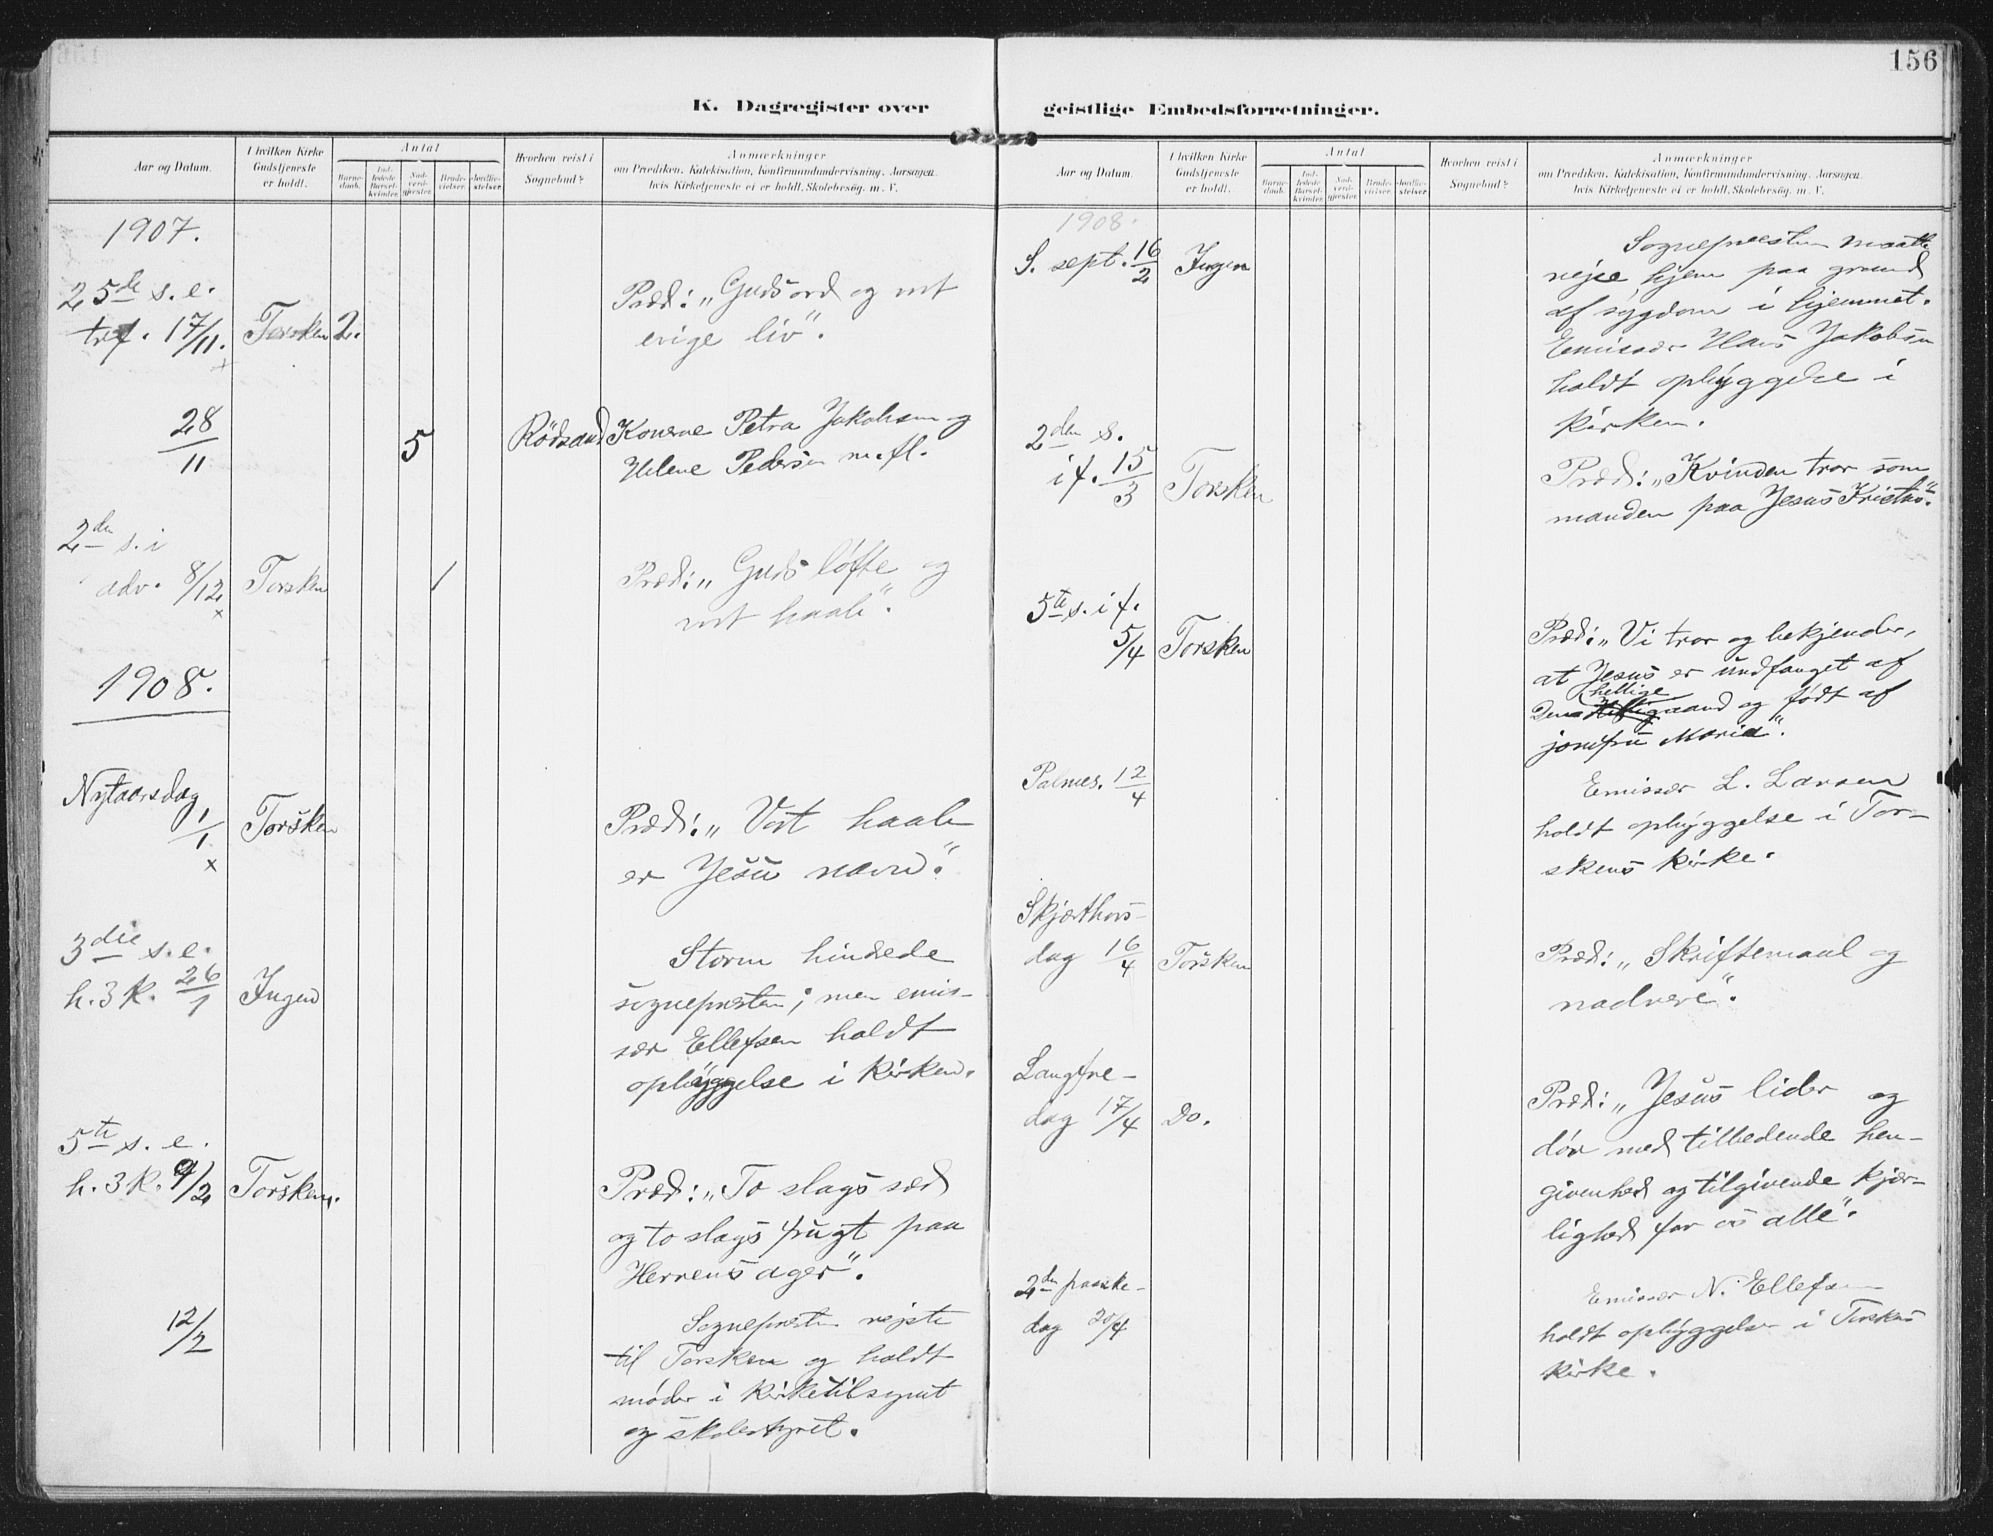 156
K. Dagregister over geistlige Embedsforretninger.
Aar og Datum.
I hvilken Kirke
Gudstjeneste
er holdt.
Antal
Barne-
daab.
Ind-
ledede
Barsel-
kvinder.
Nad-
verd-
gjester.
Brude-
vielser.
Jordfæ-
stelser.
Hvorhen reist i
Sognebud?
Anmærkninger
om Prædiken, Katekisation, Konfirmandundervisning, Aarsagen,
hvis Kirketjeneste ei er holdt, Skolebesøg, m. V.
1907.
25de s. e.
tref. 17/11.
x
Torsken
2.
Præd: „Guds ord og vort
evige liv“.
28/11
5
Rödsand
Konerne Petra Jakobsen og
Helene Pedersen m. fl.
2den s. i
adv. 8/12
x
Torsken
1
Præd: „Guds løfte og
vort haab“.
1908.
Nytaarsdag
1/1
x
Torsken
Præd: „Vort haab
er Jesu navn“.
3die s. e.
h. 3 k. 26/1
Ingen
Storm hindrede
sognepresten; men emis-
sær Ellefsen holdt
opbyggelse i kirken.
5te s. e.
h. 3 k. 9/2
Torsken.
Præd: „To slags sæd
og to slags frugt paa
Herrens ager“.
12/2
Sognepresten rejste
til Torsken og holdt
møder i kirketilsynet
og skolestyret.
Aar og Datum.
I hvilken Kirke
Gudstjeneste
er holdt.
Antal
Barne-
daab.
Ind-
ledede
Barsel-
kvinder.
Nad-
verd-
gjester.
Brude-
vielser.
Jordfæ-
stelser.
Hvorhen reist i
Sognebud?
Anmærkninger
om Prædiken, Katekisation, Konfirmandundervisning, Aarsagen,
hvis Kirketjeneste ei er holdt, Skolebesøg, m. V.
1908.
S. sept. 16/2
Ingen
Sognepresten maatte
rejse hjem paa grund
af sygdom i hjemmet.
Emissær Hans Jakobsen
holdt opbyggelse i
kirken.
2den s.
i f. 15/3
Torsken
Præd: „Kvinden tror som
manden paa Jesus Kristus“.
5te s. i f.
5/4
Torsken
Præd: „Vi tror og bekjender,
at Jesus er undfanget af
hellige
Den Helligaand og født af
jomfru Maria“.
Palmes. 12/4
Emissær L. Larsen
holdt opbyggelse i Tor-
skens kirke.
Skjærthors-
dag 16/4
Torsken
Præd: „Skriftemaal og
nadvere“.
Langfre-
dag 17/4
Do.
Præd: „Jesus lider og
dør med tilbedende hen-
givenhed og tilgivende kjær-
lighed for os alle“.
2den paaske-
dag 20/4
Emissær N. Ellefsen
holdt opbyggelse i Torskens
kirke.